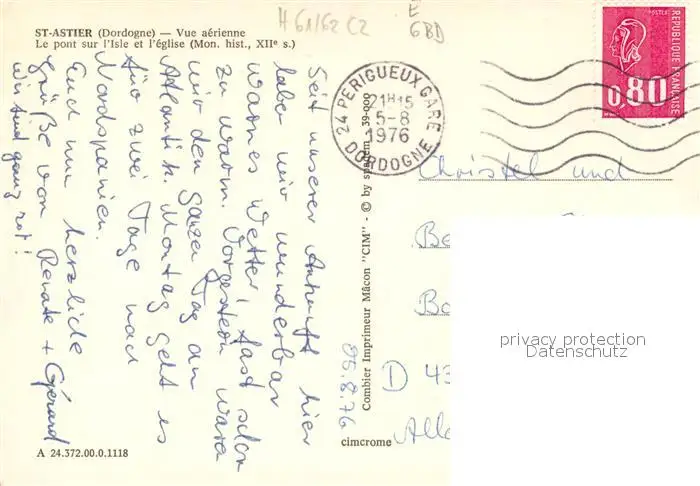 H 61/62 C2
E
6BD
ST-ASTIER (Dordogne) — Vue aérienne
Le pont sur l'Isle et l'église (Mon. hist., XIIe s.)
POSTES
REPUBLIQUE FRANÇAISE
0,80
24 PERIGUEUX GARE
21H15
5-8
1976
DORDOGNE
Seit unserer Ankunft hier
habe wir wunderbar
warmes Wetter, fast schon
zu warm. Vorgestern waren
wir den ganzen Tag am
Atlantik. Montag geht es
für zwei Tage nach
Nordspanien.
Euch nun herzliche
Grüße von Renate + Gérard
Wir sind ganz rot!
05.8.76
Combier Imprimeur Mâcon "CIM" - © by spadem 39-000
Christel und
Be
Bo
D 43
Alle
privacy protection
Datenschutz
cimcrome
A 24.372.00.0.1118